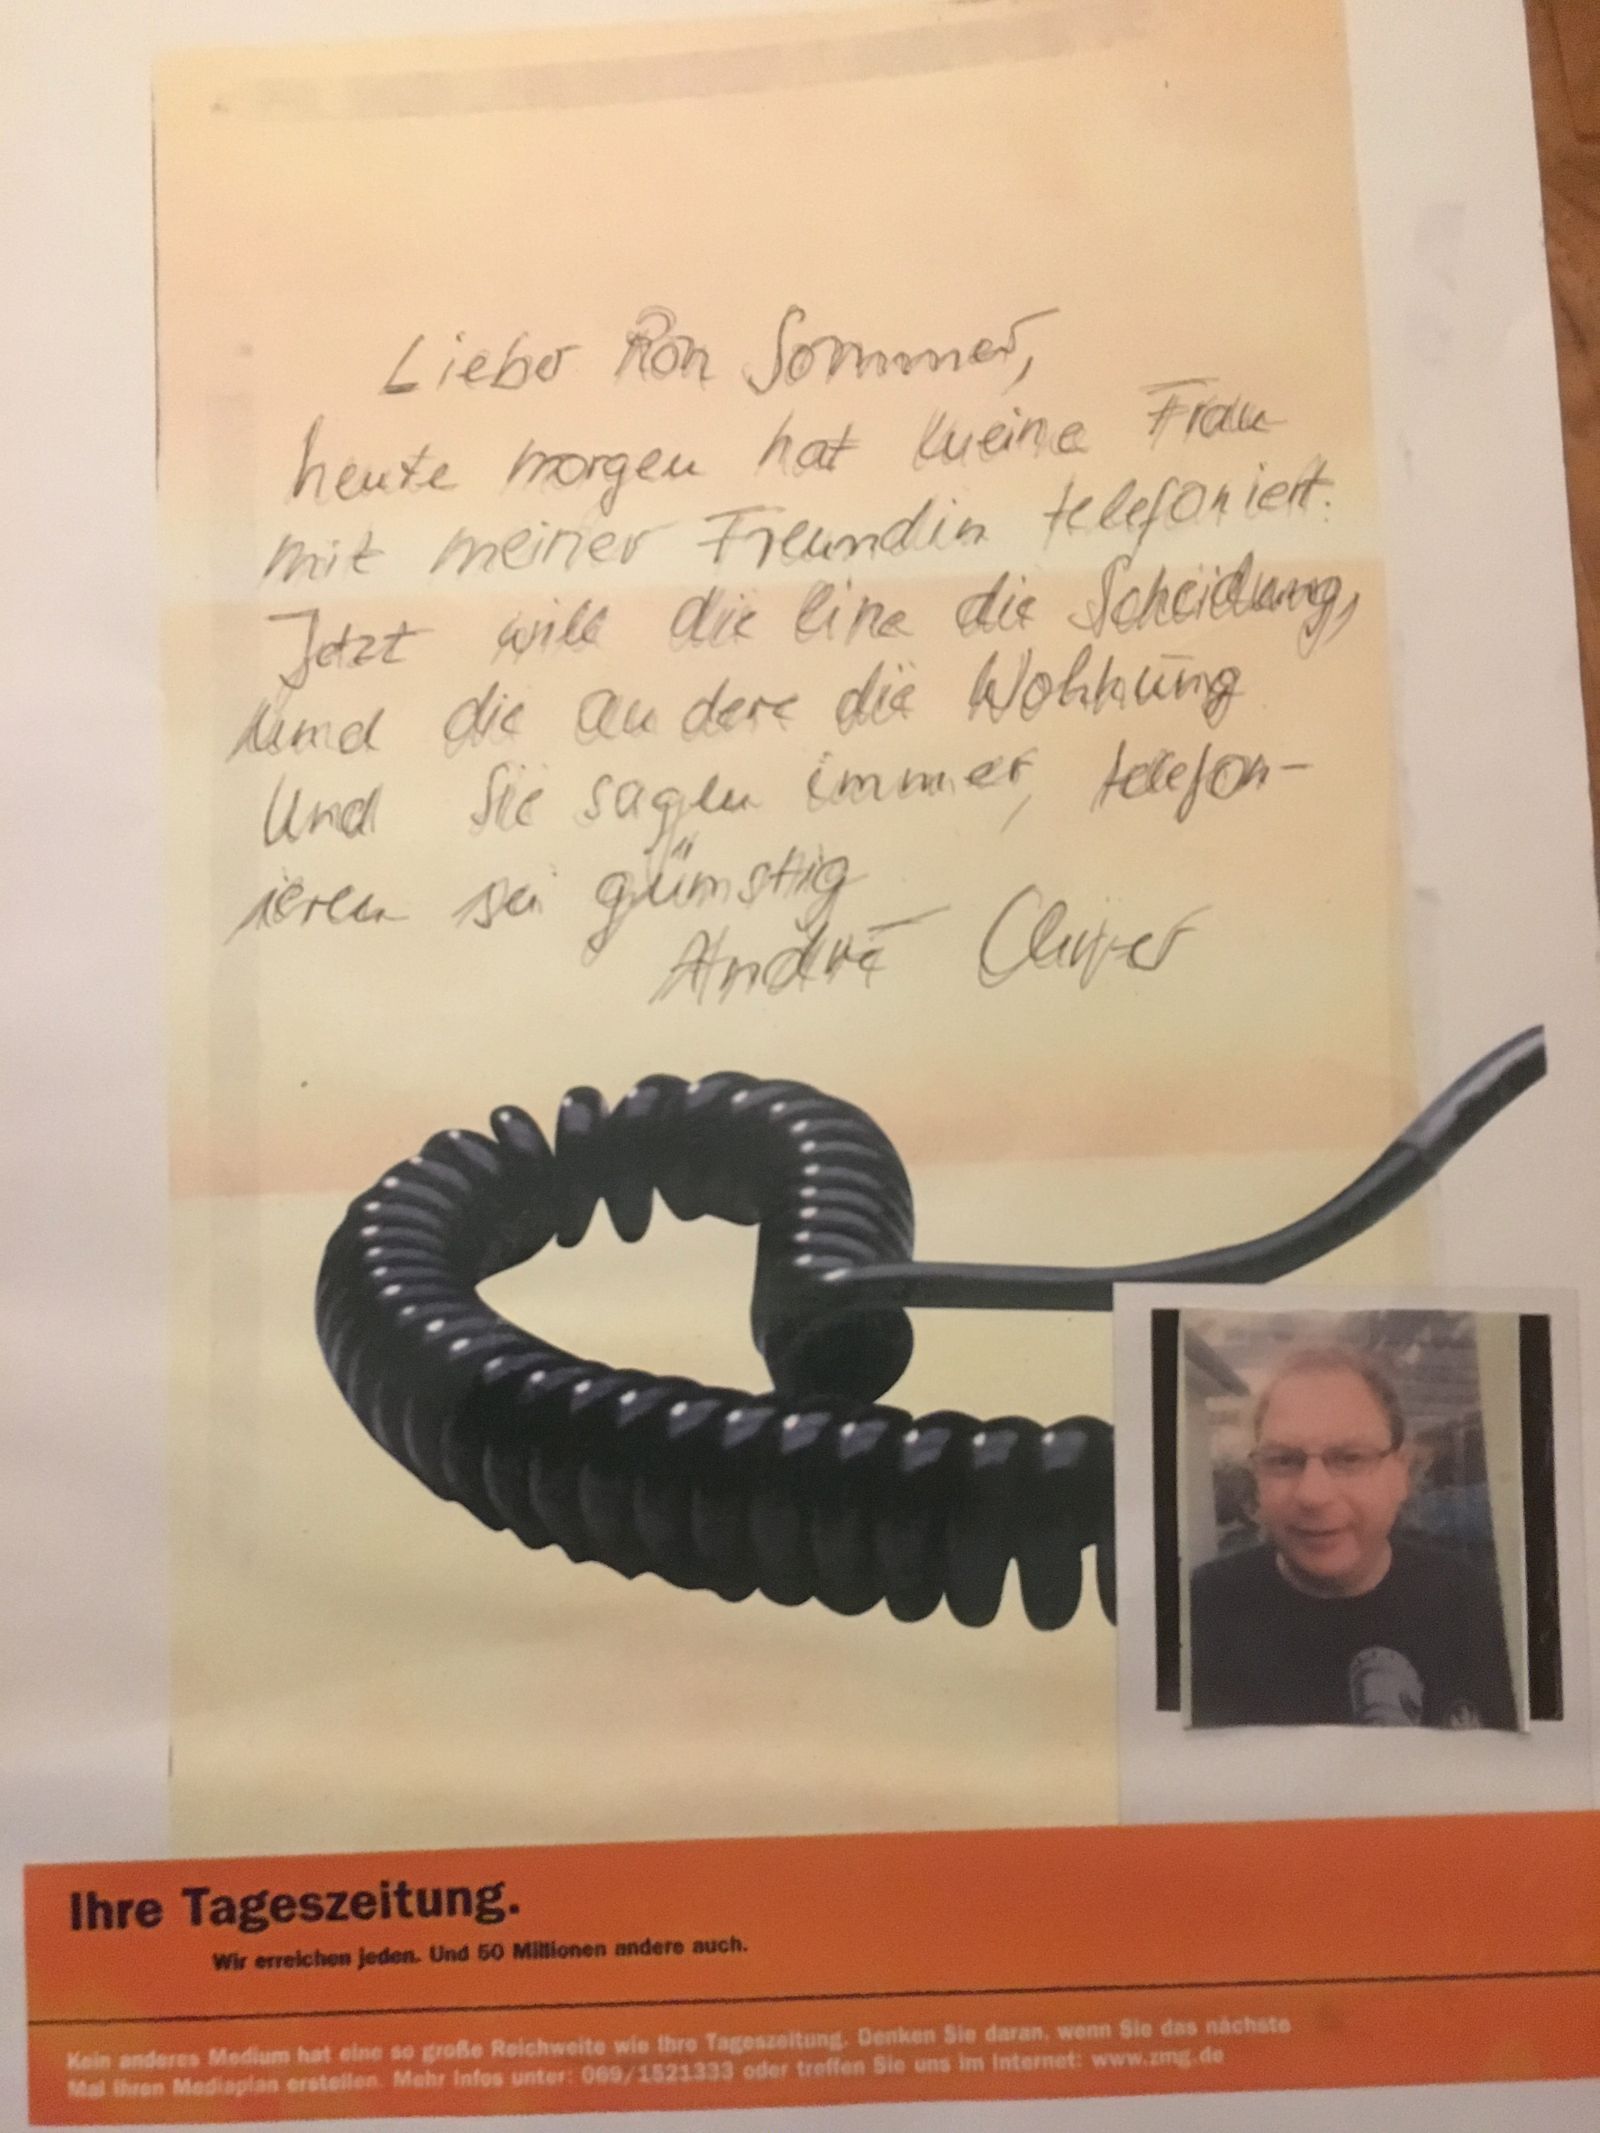 Lieber Ron Sommer,
heute morgen hat meine Frau
mit meiner Freundin telefoniert.
Jetzt will die eine die Scheidung,
und die andere die Wohnung
Und Sie sagen immer, telefon-
ieren sei günstig
André
Ihre Tageszeitung.
Wir erreichen jeden. Und 50 Millionen andere auch.
Kein anderes Medium hat eine so große Reichweite wie Ihre Tageszeitung. Denken Sie daran, wenn Sie das nächste
Mal Ihren Mediaplan erstellen. Mehr Infos unter: 069/1521333 oder treffen Sie uns im Internet: www.zmg.de